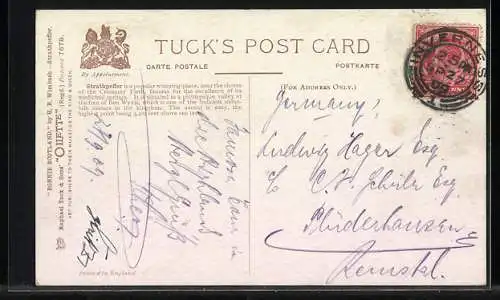 TUCK'S POST CARD
By Appointment.
CARTE POSTALE
POSTKARTE
(FOR ADDRESS ONLY.)
Strathpeffer is a popular watering place, near the shores
of the Cromarty Firth, famous for the excellence of its
medicinal waters. It is situated in a picturesque valley at
the foot of Ben Wyvis, which is one of the bulkiest moun-
tain masses in the kingdom. The ascent is easy, the
highest point being 3,429 feet above sea level.
"BONNIE SCOTLAND," by G. E. Wimbush—Strathpeffer.
Raphael Tuck & Sons' "OILETTE" [Regd.] Postcard 7678.
ART PUBLISHERS TO THEIR MAJESTIES THE KING AND QUEEN
28/9 09
Famosa Tour in
die Highlands
Herzl Gruß
Printed in England.
INVERNESS
SP 2
09
Germany!
Ludwig Hager Esq
C. F. Schüle Esq
Plüderhausen
Remstal.